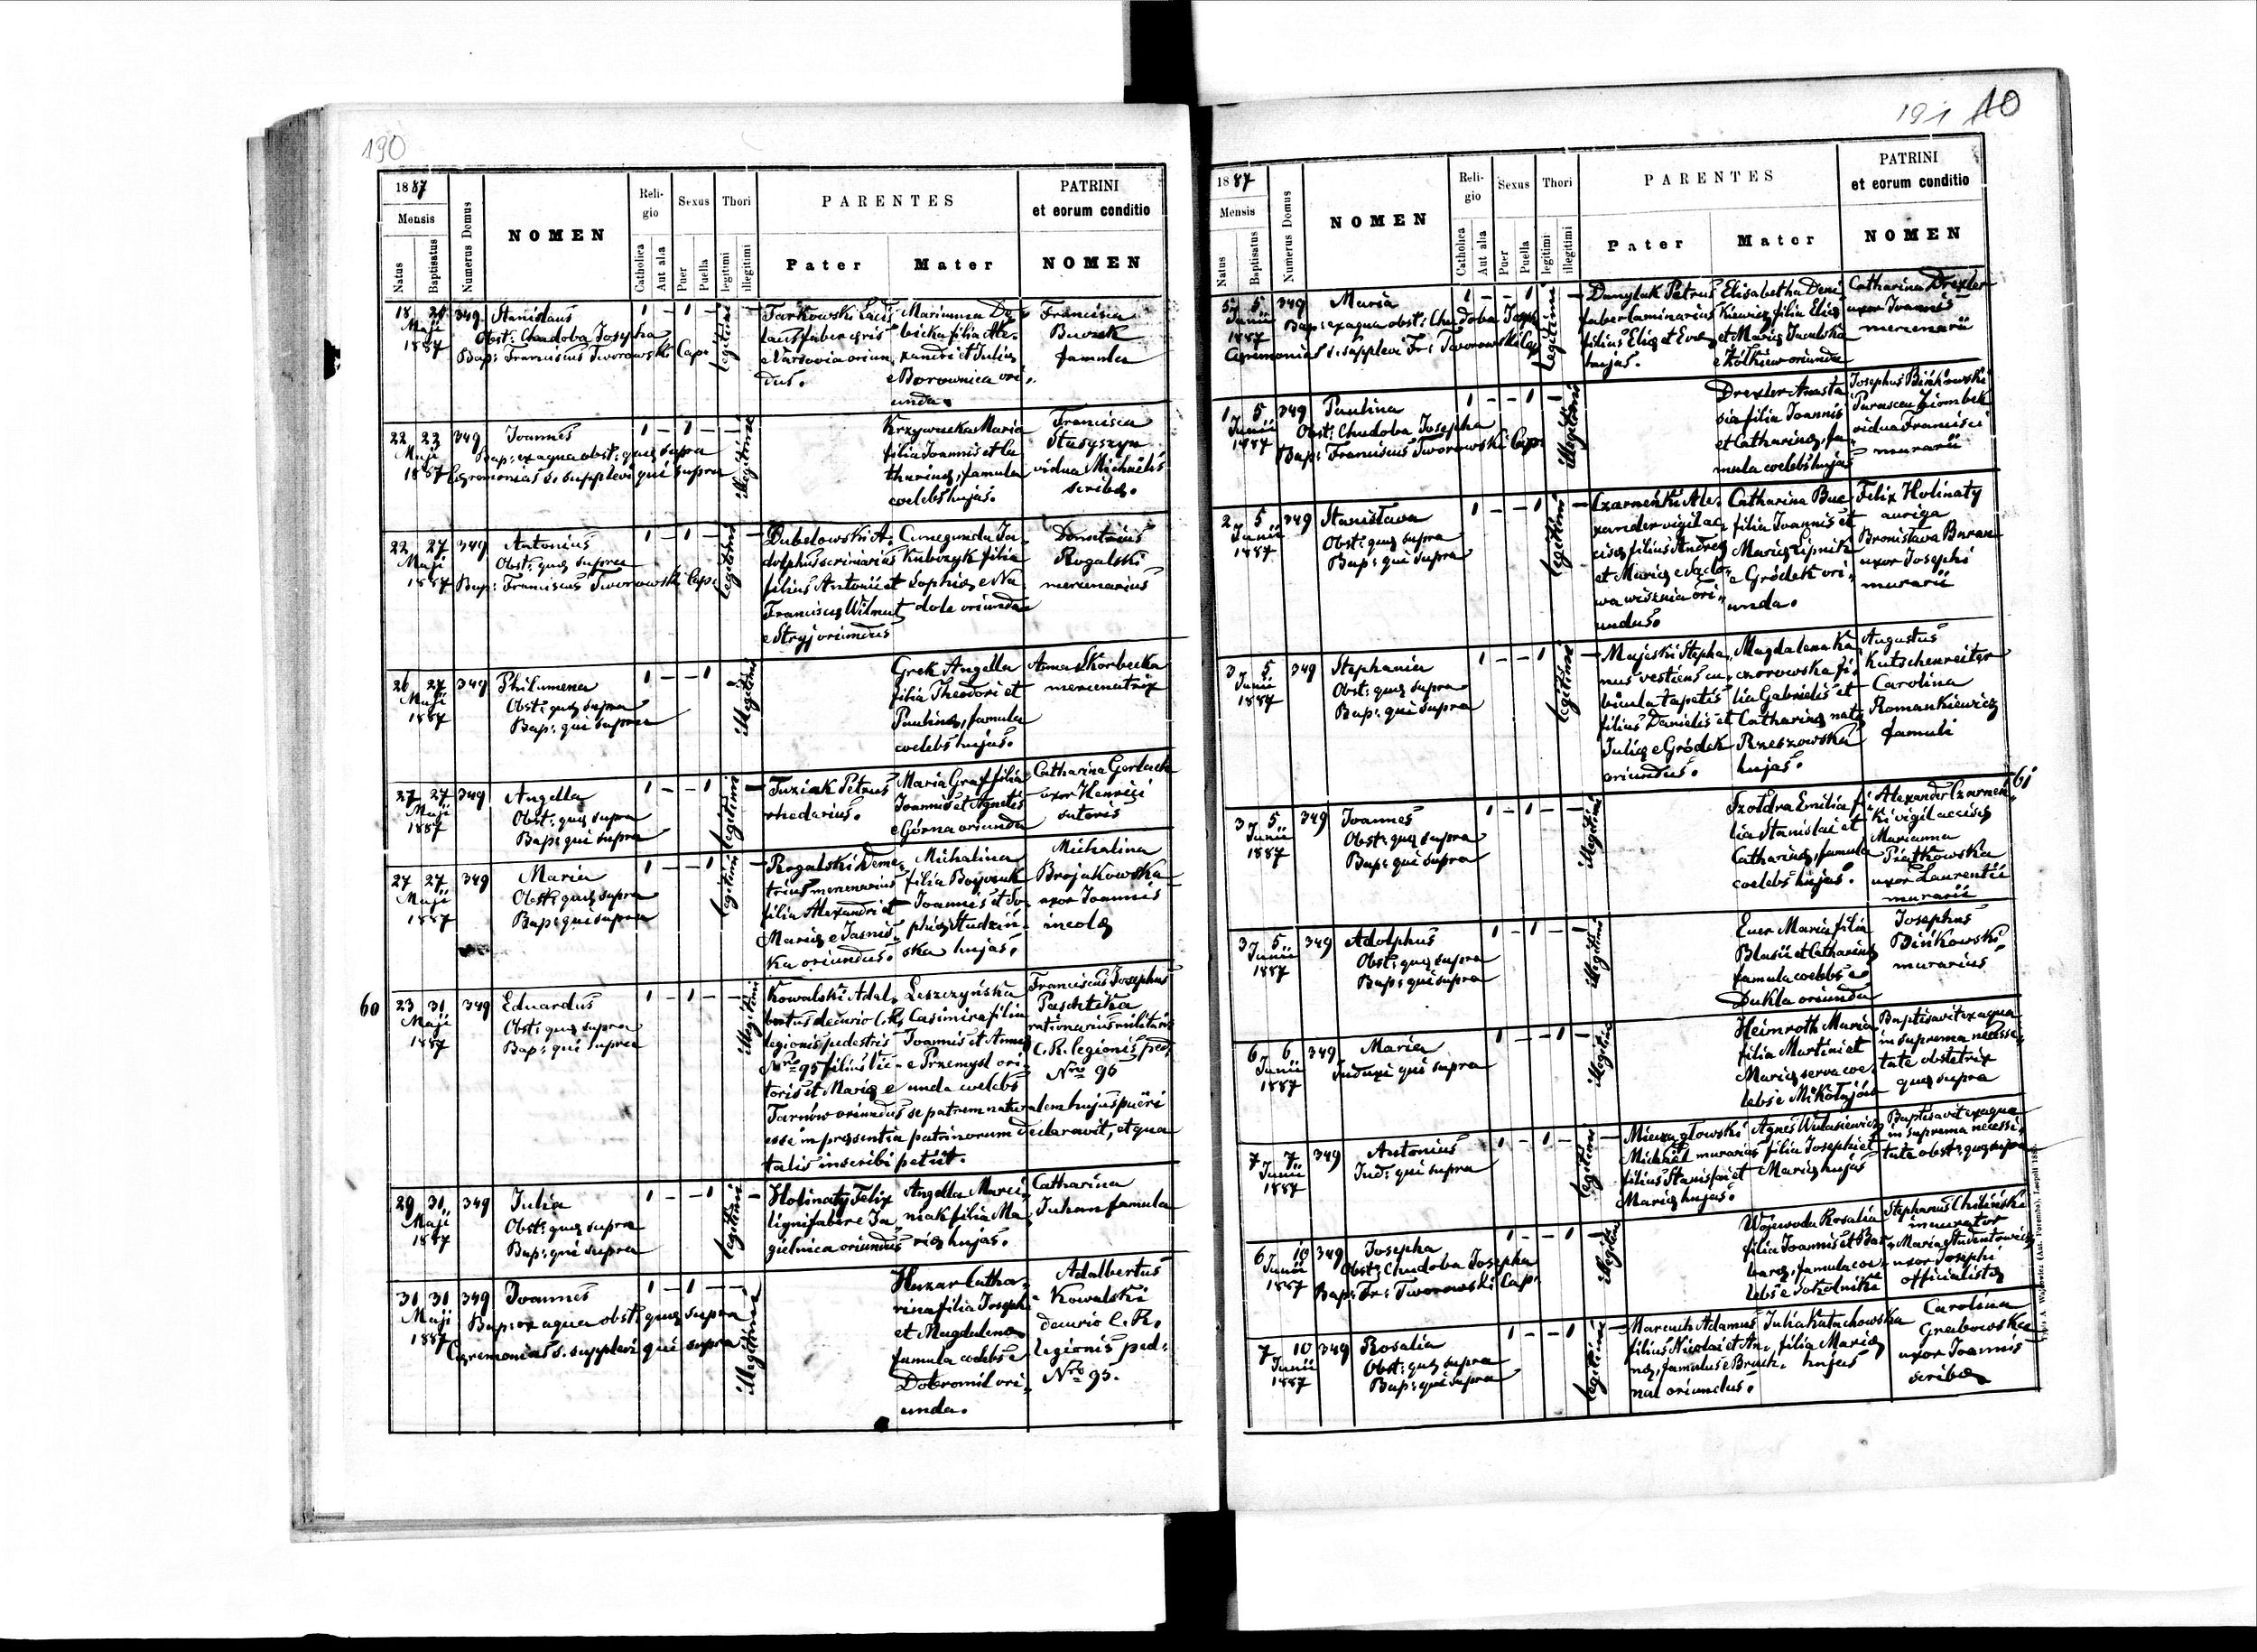 190
1887
Mensis
Natus
Baptisatus
Numerus Domus
NOMEN
Religio
Catholica
Aut alia
Sexus
Puer
Puella
Thori
legitimi
illegitimi
PARENTES
Pater
Mater
PATRINI
et eorum conditio
NOMEN
18 Maji 1887
349
Stanislaus
Obst: Chudoba Josepha
Bap: Franciscus Tworowski Cap:
1 - 1 -
legitimi
Tarkowski
laus faber
e Varsovia oriun
dus.
Marianna
filia Ale-
xandri et Julię
e Borownica ori-
unda.
Francisca
famula
22 23 Maji 1887
349
Joannes
Bap: ex aqua obst: quę supra
Cęremonias s. supplevi qui supra
1 - 1 - -
illegitimi
Krzywucka Maria
filia Joannis et Ca
tharinę, famula
coelebs hujas.
Francisca
Stasyszyn
vidua Michaelis
scribę.
22 27 Maji 1887
349
Antonius
Obst: quę supra
Bap: Franciscus Tworowski Cap:
1 - 1 -
legitimi
Dubelowski A-
dolphus scriniarius
filius Antonii et
Franciscę Wilmut
e Stryj oriundus
Cunegunda Ja-
kubczyk filia
Sophię e Na
dole oriunda
Demetrius
Rogalski
mercenarius
26 27 Maji 1887
349
Philumena
Obst: quę supra
Bap: qui supra
1 - - 1
illegitimi
Grek Angella
filia Theodori et
Paulinę, famula
coelebs hujas.
Anna Skorbecka
mercenatrix
27 27 Maji 1887
349
Angella
Obst: quę supra
Bap: qui supra
1 - - 1
legitimi
Tuziak Petrus
rhedarius.
Maria Graf filia
Joannis et Agnetis
e Górna oriunda
Catharina Gerlach
uxor Henrici
sutoris
27 27 Maji 1887
349
Maria
Obst: quę supra
Bap: qui supra
1 - - 1
legitimi
Rogalski Deme-
trius mercenarius
filius Alexandri et
Marię e Jasnis
ka oriundus.
Michalina
filia
Joannis et So-
phię Studziń-
ska hujas.
Michalina
Brojakowska
uxor Joannis
incolę
60
23 31 Maji 1887
349
Eduardus
Obst: quę supra
Bap: qui supra
1 - 1 - -
illegitimi
Kowalski Adal-
bertus decurio C.R.
legionis pedestris
Nro 95 filius Vic-
toris et Marię e
Tarnów oriundus se patrem naturalem hujus puëri
esse in pręsentia patrinorum declaravit, et qua
talis inscribi petiit.
Leszczyńska
Casimira filia
Joannis et Annę
e Przemysl ori-
unda coelebs
Franciscus Josephus
Paschtika
rationarius militaris
C.R. legionis ped:
Nro 95
29 31 Maji 1887
349
Julia
Obst: quę supra
Bap: qui supra
1 - - 1
legitimi
Holinaty Felix
lignifaber e Ja-
gielnica oriundus
Angella Marci-
niak filia Ma-
rię hujas.
Catharina
Juhan famula
31 31 Maji 1887
349
Joannes
Bap: ex aqua obst: quę supra
Cęremonias s. supplevi qui supra
1 - 1 - -
illegitimi
Huzar Catha-
rina filia Josephi
et Magdalenę
famula coelebs e
Dobromil ori-
unda.
Adalbertus
Kowalski
decurio C.R.
legionis ped:
Nro 95.
191 10
1887
Mensis
Natus
Baptisatus
Numerus Domus
NOMEN
Religio
Catholica
Aut alia
Sexus
Puer
Puella
Thori
legitimi
illegitimi
PARENTES
Pater
Mater
PATRINI
et eorum conditio
NOMEN
5 5 Junii 1887
349
Maria
Bap: ex aqua obst: Chudoba Joseph
Cęremonias s. supplevi Fr: Tworowski Cap
1 - - 1
legitimi
Danylak Petrus
faber laminarius
filius Elię et Evę
hujas.
Elisabetha Deni-
kiewicz filia Elię
et Marię
e Żółkiew oriunda
Catharina Drexler
uxor Joannis
mercenarii
1 5 Junii 1887
349
Paulina
Obst: Chudoba Josepha
Bap: Franciscus Tworowski Cap:
1 - - 1
illegitimi
Drexler Anasta
sia filia Joannis
et Catharinę, fa-
mula coelebs hujas
Josephus Bińkowski
Parascea Ziombek
vidua Francisci
murarii
2 5 Junii 1887
349
Stanisłava
Obst: quę supra
Bap: qui supra
1 - - 1
legitimi
Czarnecki Ale-
xander vigil ac-
cisę filius Andreę
et Marię e Sądo-
wa wisznia ori-
undus.
Catharina Buc
filia Joannis et
Marię Lipnik
e Gródek ori-
unda.
Felix Holinaty
auriga
Bronisława Buran
uxor Josephi
murarii
3 5 Junii 1887
349
Stephania
Obst: quę supra
Bap: qui supra
1 - - 1
legitimi
Majeski Stepha-
nus vestiens cu-
bicula tapetis
filius Danielis et
Julię e Gródek
oriundus.
Magdalena Ka-
czorowska fi-
lia Gabrielis et
Catharinę natę
Rzeszowska
hujas.
Augustus
Kutschenreiter
Carolina
Romankiewicz
famuli
61
3 5 Junii 1887
349
Joannes
Obst: quę supra
Bap: qui supra
1 - 1 - -
illegitimi
Szołdra Emilia fi-
lia Stanislai et
Catharinę, famula
coelebs hujas.
Alexander Czarnec-
ki vigil accisę
Marianna
Piątkowska
uxor Laurentii
murarii
3 5 Junii 1887
349
Adolphus
Obst: quę supra
Bap: qui supra
1 - 1 - 1
illegitimi
Ewer Maria filia
Blasii et Catharinę
famula coelebs e
Dukla oriunda
Josephus
Bińkowski
murarius
6 6 Junii 1887
349
Maria
Induxi qui supra
1 - - 1 1
illegitimi
Heimroth Maria
filia Martini et
Marię serva coe-
lebs e Mikołajów
Baptisavit ex aqua
in suprema necessi-
tate obstetrix
quę supra
7 7 Junii 1887
349
Antonius
Ind: qui supra
1 - 1 -
legitimi
Mieczagłowski
Michaël murarius
filius Stanislai et
Marię hujas.
Agnes Wulasiewicz
filia Josephi et
Marię hujas
Baptisavit ex aqua
in suprema necessi-
tate obst: quę supra
6 10 Junii 1887
349
Josepha
Obst: Chudoba Josepha
Bap: Fr: Tworowski Cap:
1 - - 1 1
illegitimi
Wojewoda Rosalia
filia Joannis et Bar-
barę, famula coe-
lebs e Sokolniki
Stephanus Chiliński
inaurator
Maria Studentowicz
uxor Josephi
officialistę
7 10 Junii 1887
349
Rosalia
Obst: quę supra
Bap: qui supra
1 - - 1
legitimi
Marcuch Adamus
filius Nicolai et An-
nę, famulus e Bruch-
nal oriundus.
Julia Kułachowska
filia Marię
hujas
Carolina
Grabowska
uxor Joannis
scribę